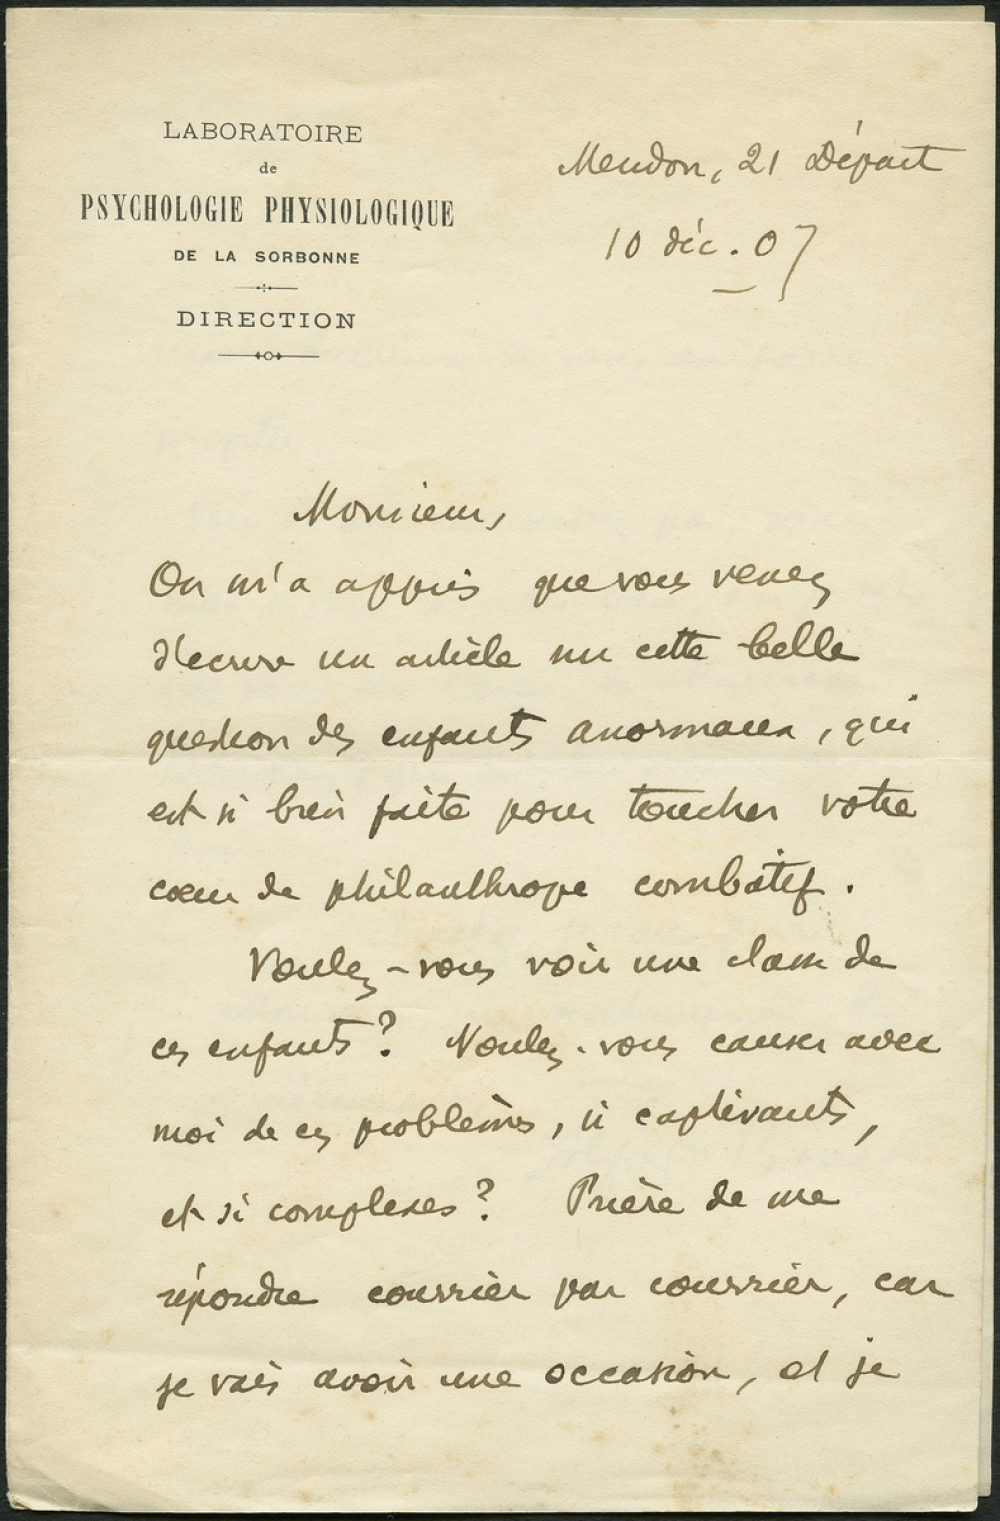 LABORATOIRE
de
PSYCHOLOGIE PHYSIOLOGIQUE
DE LA SORBONNE
DIRECTION
Meudon, 21 Départ
10 déc. 07
Monsieur,
On m'a appris que vous venez
d'écrire un article sur cette belle
question des enfants anormaux, qui
est si bien faite pour toucher votre
cœur de philanthrope combatif.
Voulez-vous voir une classe de
ces enfants? Voulez-vous causer avec
moi de ces problèmes, si captivants,
et si complexes? Prière de me
répondre courrier par courrier, car
je vais avoir une occasion, et je